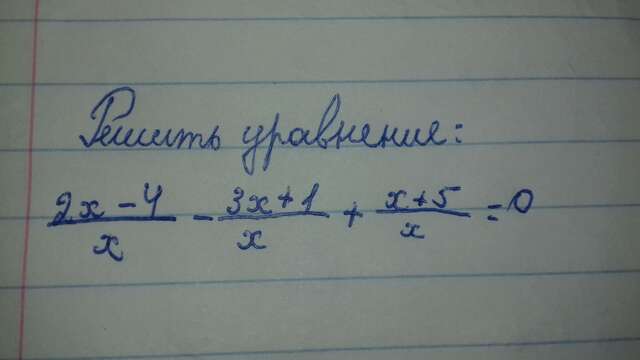 Решить уравнение:
(2x - 4)/x - (3x + 1)/x + (x + 5)/x = 0